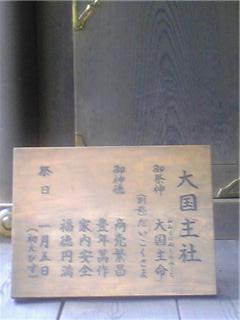 大国主社
御祭神 大国主命
おおくにぬしのみこと
(別名)だいこくさま
御神徳 商売繁昌
豊年萬作
家内安全
福徳円満
祭日 一月五日
(初えびす)